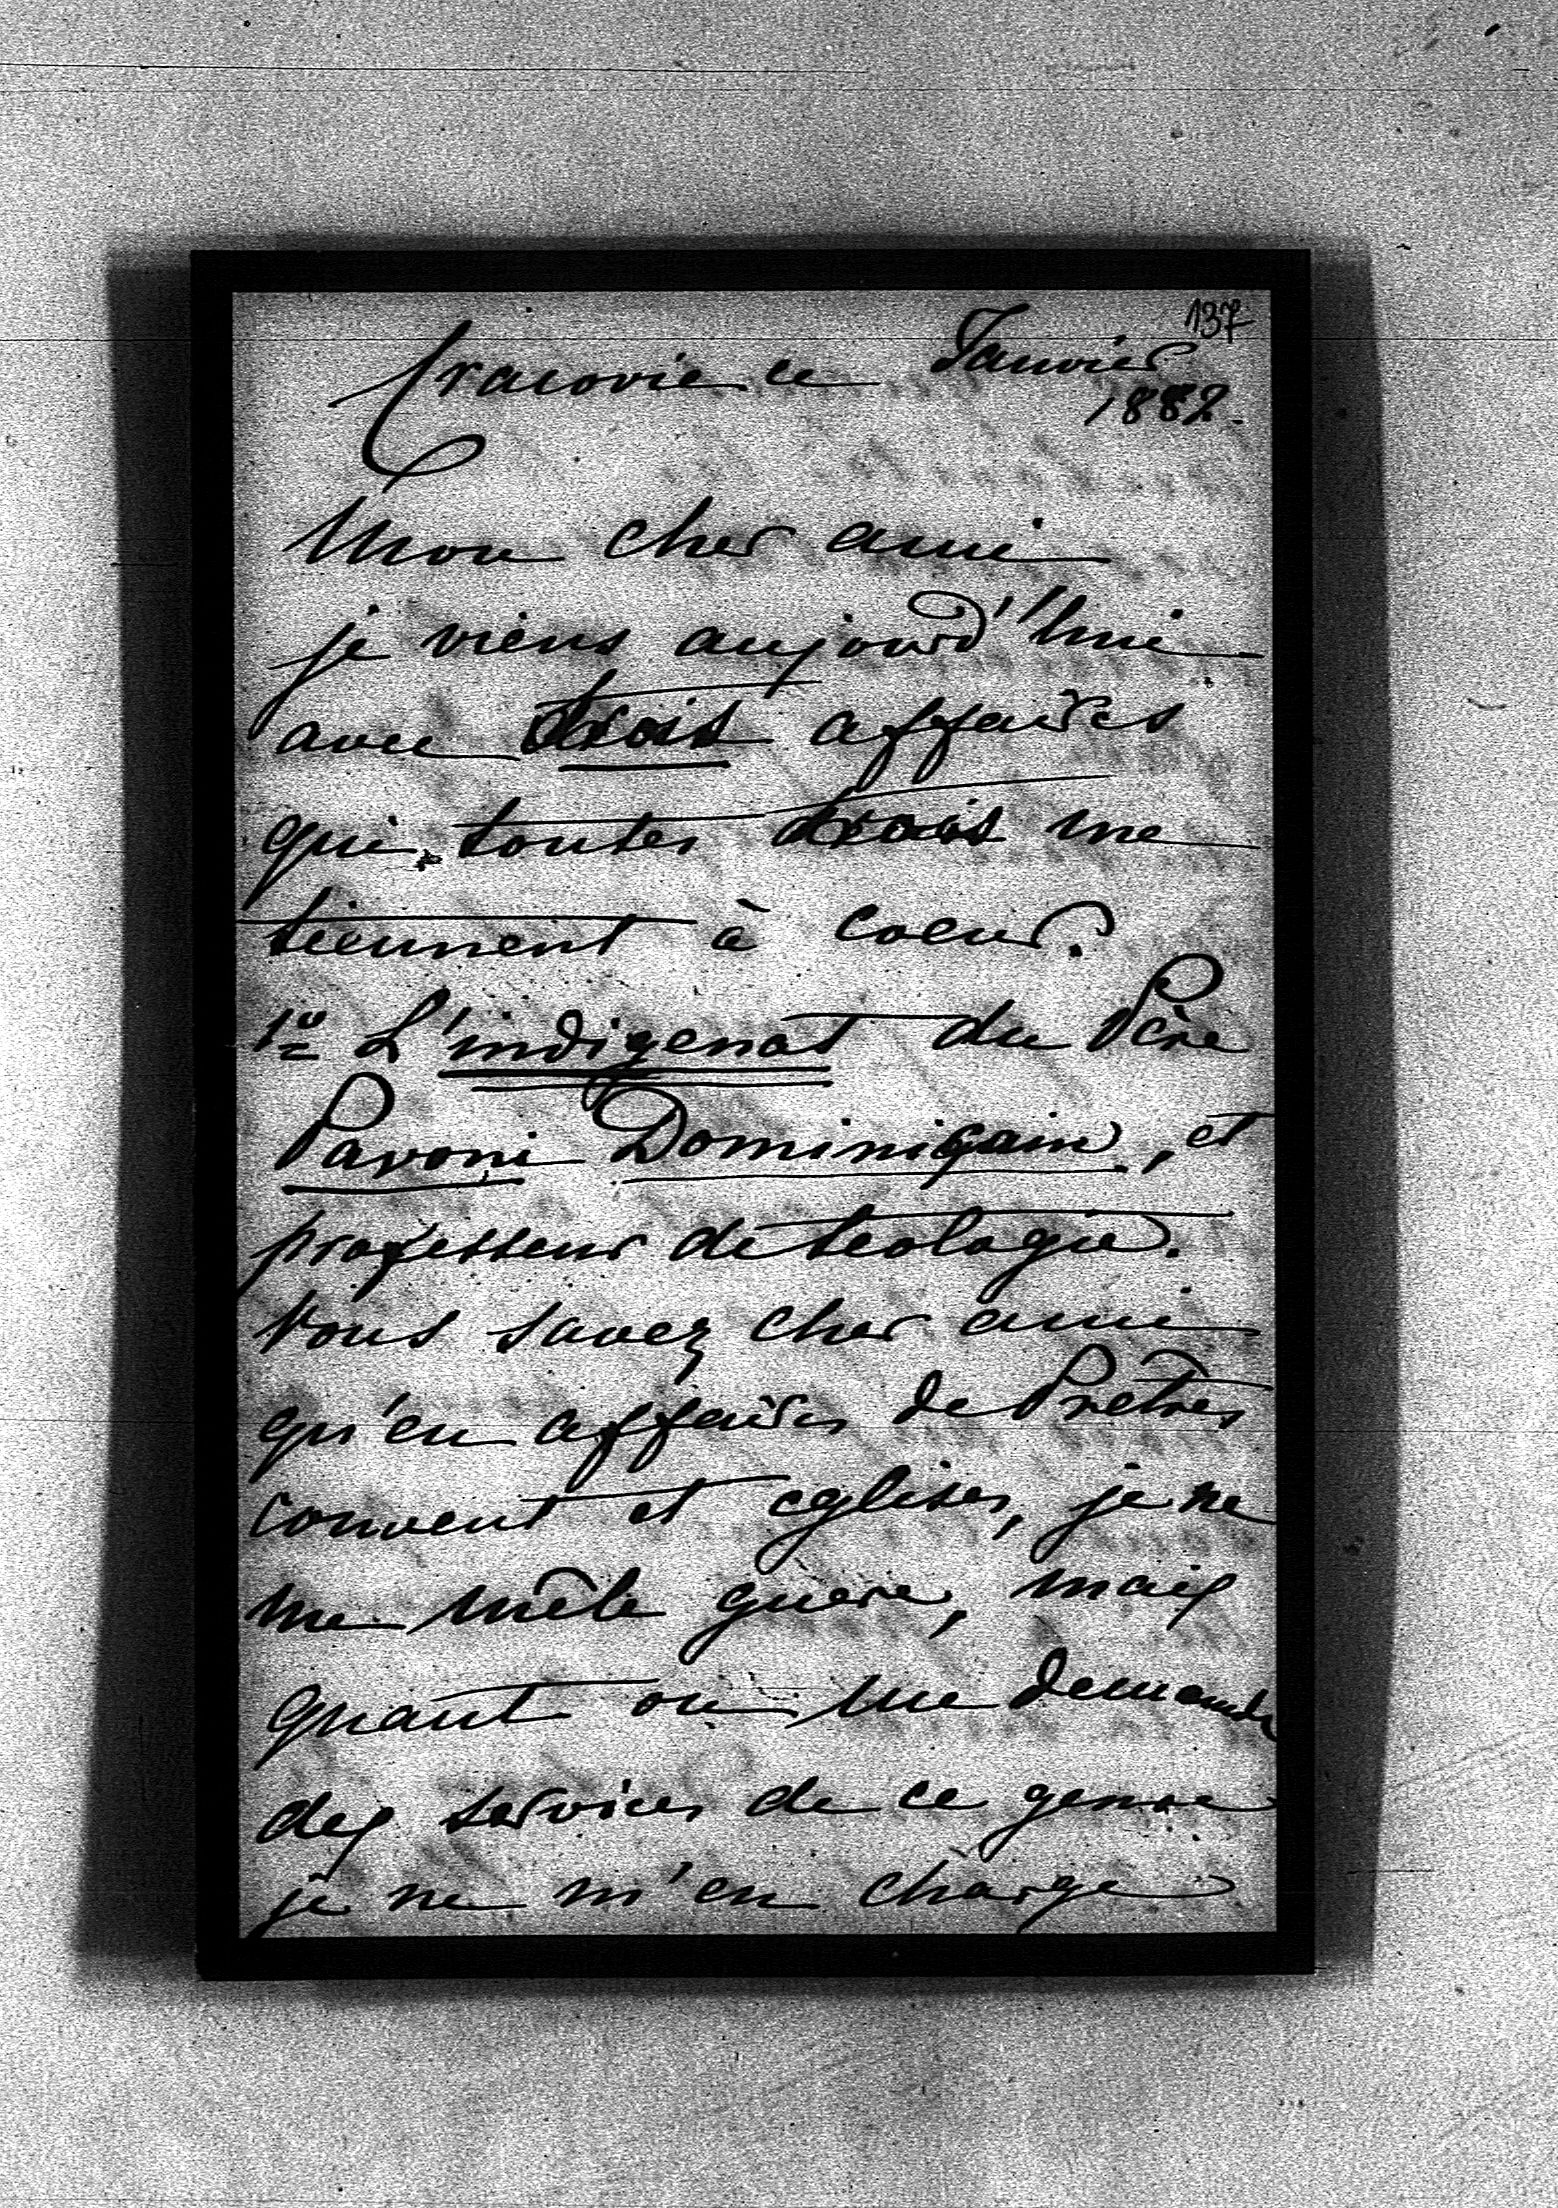 137
Cracovie ce Janvier
1882.
Mon cher ami
je viens aujourd'hui
avec trois affaires
qui toutes trois me
tiennent à coeur.
1º L'indigenat du Père
Pavoni Dominiçain, et
professeur de teologie.
Vous savez cher ami
qu'en affaires de Prêtres
couvent et eglises, je ne
me mêle guere, mais
quant on me demande
des services de ce genre
je ne m'en charge